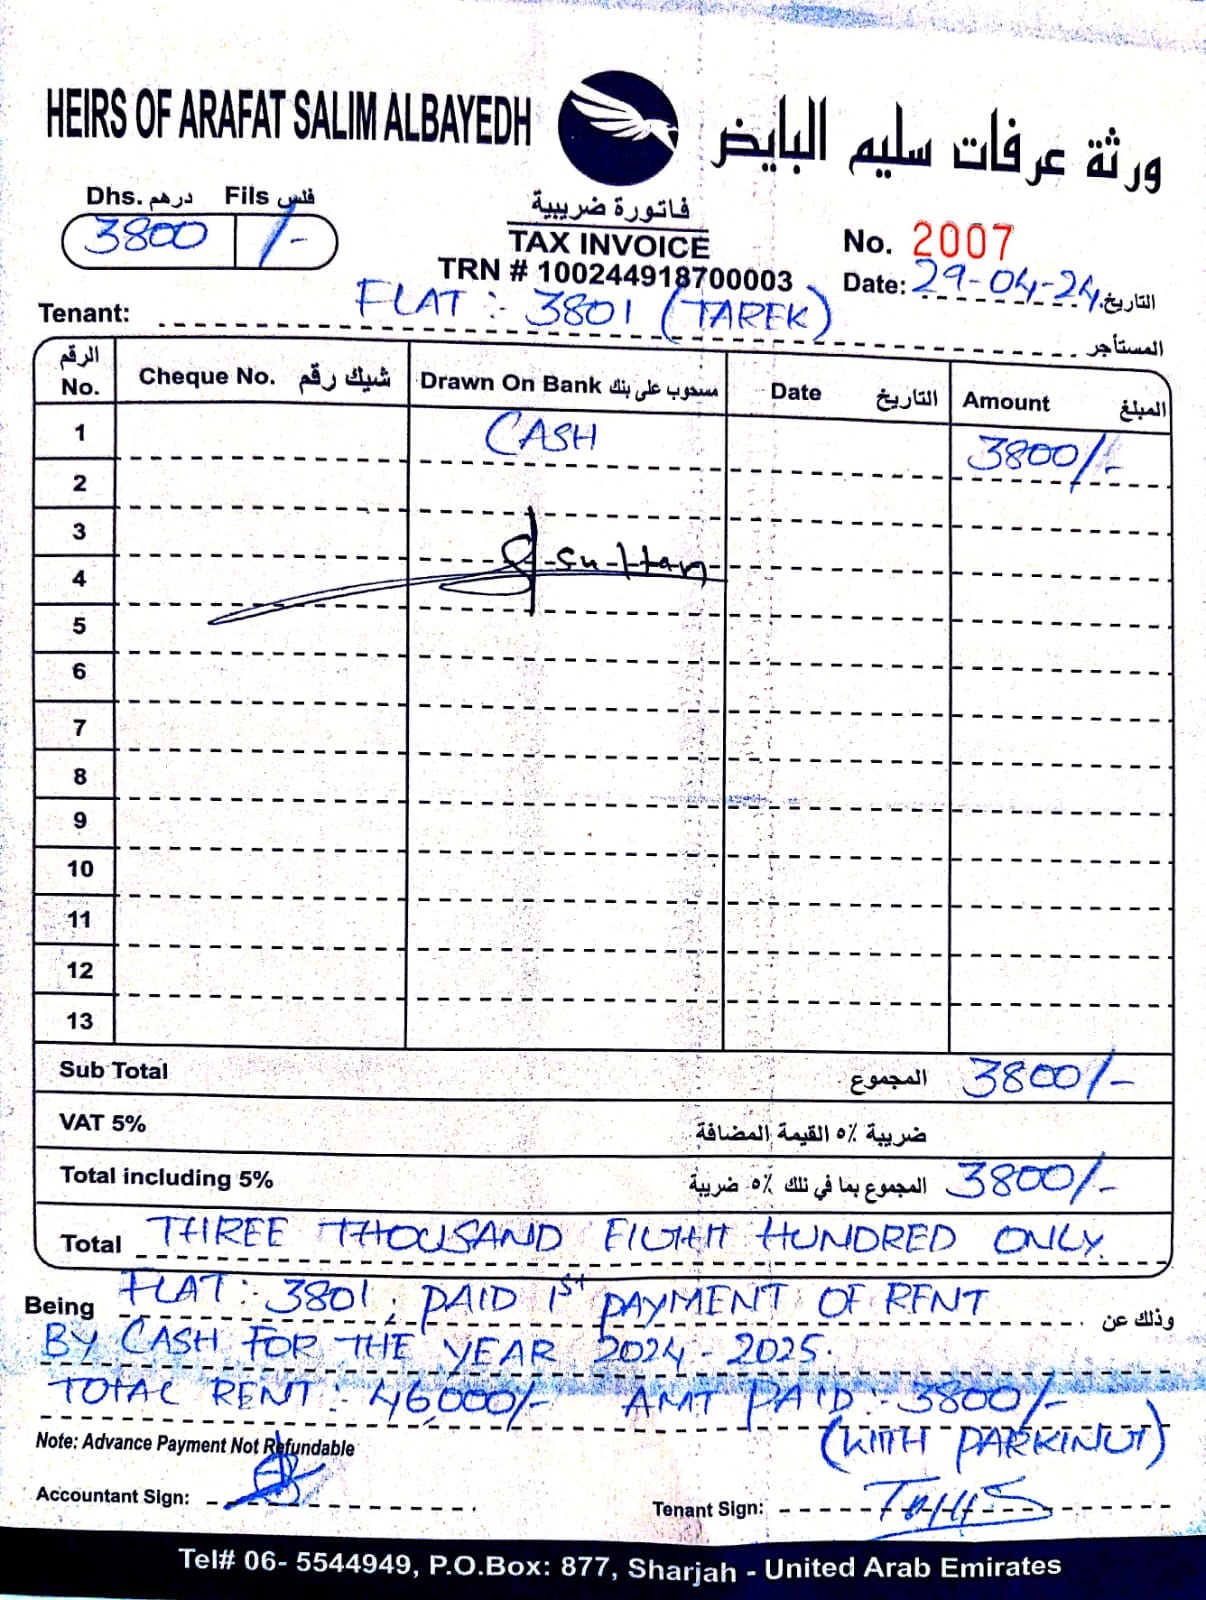 HEIRS OF ARAFAT SALIM ALBAYEDH
ورثة عرفات سليم البايض
Dhs. درهم Fils فلس
3800 /-
فاتورة ضريبية
TAX INVOICE
TRN # 100244918700003
No. 2007
Date: 29-04-24 التاريخ
Tenant: FLAT :- 3801 (TAREK) المستأجر
الرقم No. Cheque No. شيك رقم Drawn On Bank مسحوب على بنك Date التاريخ Amount المبلغ
1 CASH 3800/-
2
3
4 sultan
5
6
7
8
9
10
11
12
13
Sub Total المجموع 3800/-
VAT 5% ضريبة ٥٪ القيمة المضافة
Total including 5% المجموع بما في ذلك ٥٪ ضريبة 3800/-
Total THREE THOUSAND EIGHT HUNDRED ONLY.
Being FLAT :- 3801, PAID 1st PAYMENT OF RENT وذلك عن
BY CASH FOR THE YEAR 2024 - 2025.
TOTAL RENT :- 46,000/- AMT PAID :- 3800/-
(WITH PARKING)
Note: Advance Payment Not Refundable
Accountant Sign:
Tenant Sign:
Tel# 06- 5544949, P.O.Box: 877, Sharjah - United Arab Emirates